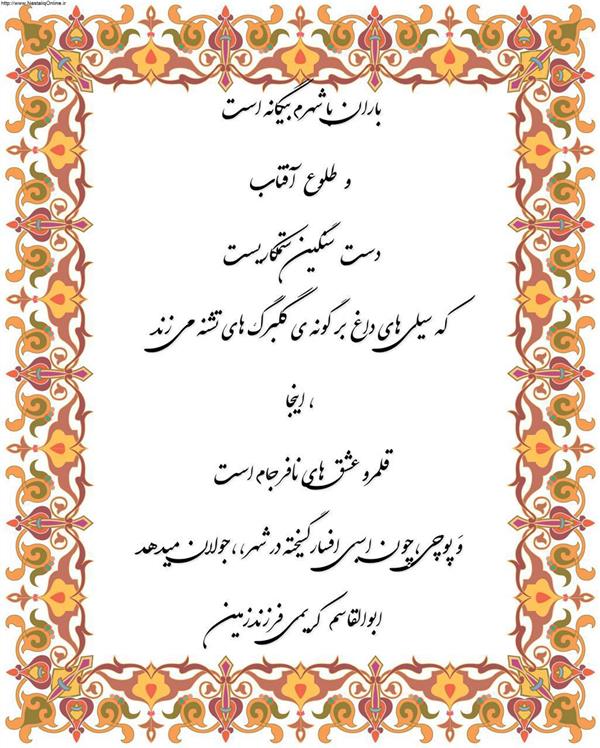 http://www.NastaliqOnline.ir
باران با شهرم بیگانه است
و طلوع آفتاب
دست سنگین ستمکاریست
که سیلی های داغ بر گونه ی گلبرگ های تشنه می زند
، اینجا
قلمرو عشق های نافرجام است
وَ پوچی،چون اسبی افسار گسیخته در شهر،،جولان میدهد
ابوالقاسم کریمی فرزندزمین